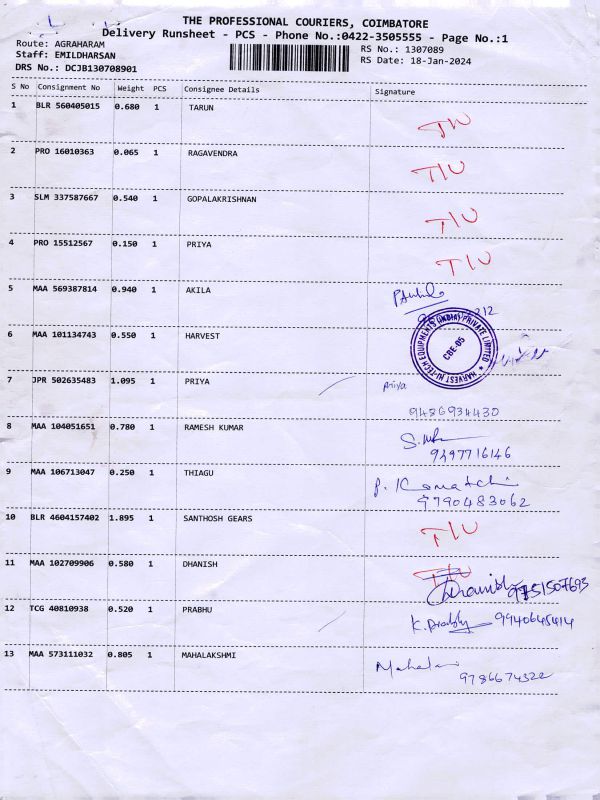 THE PROFESSIONAL COURIERS, COIMBATORE
Delivery Runsheet - PCS - Phone No.:0422-3505555 - Page No.:1
Route: AGRAHARAM
RS No.: 1307089
Staff: EMILDHARSAN
RS Date: 18-Jan-2024
DRS No.: DCJB130708901
S No Consignment No Weight PCS Consignee Details Signature
1 BLR 560405015 0.680 1 TARUN
2 PRO 16010363 0.065 1 RAGAVENDRA
3 SLM 337587667 0.540 1 GOPALAKRISHNAN
4 PRO 15512567 0.150 1 PRIYA
5 MAA 569387814 0.940 1 AKILA
6 MAA 101134743 0.550 1 HARVEST
HARVEST HI-TECH EQUIPMENTS (INDIA) PRIVATE LIMITED
CBE-05
7 JPR 502635483 1.095 1 PRIYA Priya
9486934430
8 MAA 104051651 0.780 1 RAMESH KUMAR
9497716146
9 MAA 106713047 0.250 1 THIAGU P. Komatchi
9790483062
10 BLR 4604157402 1.895 1 SANTHOSH GEARS
11 MAA 102709906 0.580 1 DHANISH Dhanish
12 TCG 40810938 0.520 1 PRABHU K. Prabhu 9940645414
13 MAA 573111032 0.805 1 MAHALAKSHMI
9786674322